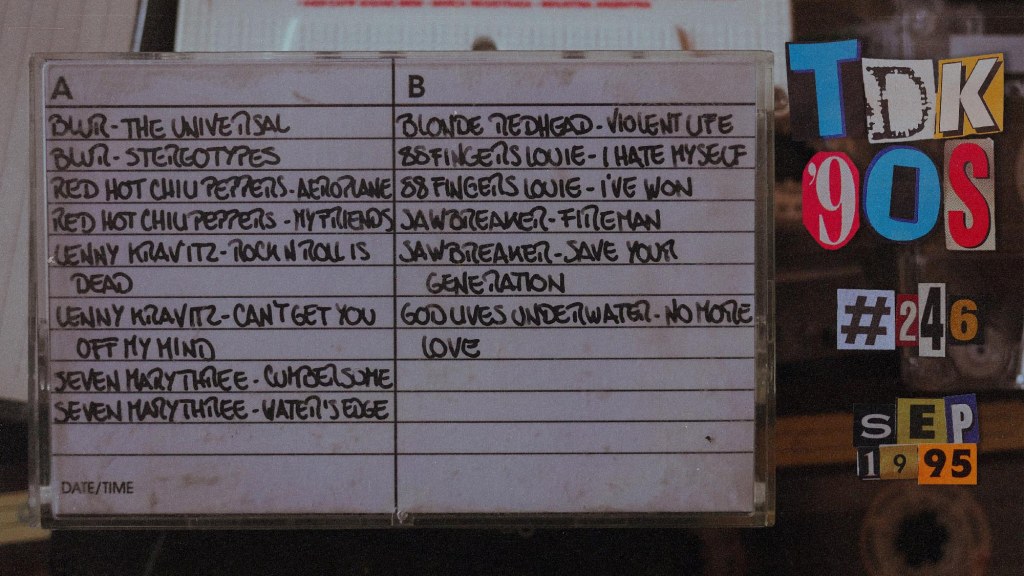 A
BLUR - THE UNIVERSAL
BLUR - STEREOTYPES
RED HOT CHILI PEPPERS - AEROPLANE
RED HOT CHILI PEPPERS - MY FRIENDS
LENNY KRAVITZ - ROCK N ROLL IS
DEAD
LENNY KRAVITZ - CAN'T GET YOU
OFF MY MIND
SEVEN MARY THREE - CUMBERSOME
SEVEN MARY THREE - WATER'S EDGE
DATE/TIME
B
BLONDE REDHEAD - VIOLENT LIFE
88 FINGERS LOUIE - I HATE MYSELF
88 FINGERS LOUIE - I'VE WON
JAWBREAKER - FIREMAN
JAWBREAKER - SAVE YOUR
GENERATION
GOD LIVES UNDERWATER - NO MORE
LOVE
TDK
'90S
#246
SEP
1995